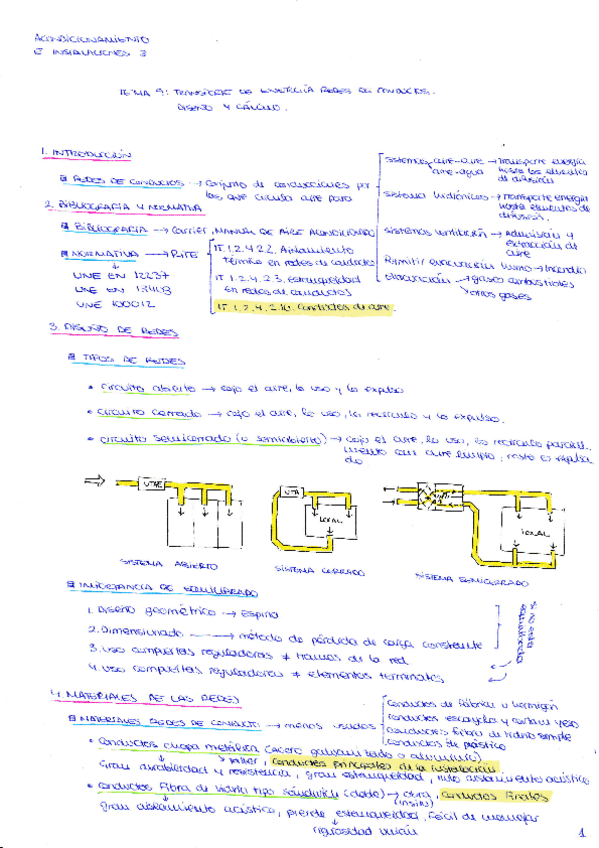 ACONDICIONAMIENTO
E INSTALACIONES 3
TEMA 9: TRANSPORTE DE ENERGÍA REDES DE CONDUCTOS.
DISEÑO Y CÁLCULO.
1. INTRODUCCIÓN
REDES DE CONDUCTOS → conjunto de conducciones por
las que circula aire para
sistemas aire-aire → transporte energía
aire-agua hasta los elementos
de difusión
sistema hidrónicos → transporte energía
hasta elementos de
difusión.
sistemas ventilación → admisión y
extracción de
aire
Permitir evacuación humo → incendio
evacuación → gases combustibles
otros gases
2. BIBLIOGRAFÍA Y NORMATIVA
BIBLIOGRAFÍA → Carrier, MANUAL DE AIRE ACONDICIONADO
NORMATIVA → RITE
UNE EN 12237
UNE EN 13403
UNE 100012
IT 1.2.4.2.2. Aislamiento
térmico en redes de conductos
IT 1.2.4.2.3. estanqueidad
en redes de conductos
IT 1.2.4.2.10. Conductos de aire.
3. DISEÑO DE REDES
TIPOS DE REDES
• circuito abierto → cojo el aire, lo uso y lo expulso
• circuito cerrado → cojo el aire, lo uso, lo recirculo y lo expulso.
• circuito semicerrado (o semiabierto) → cojo el aire, lo uso, lo recirculo parcial
mente con aire limpio, resto es expulsa
do
UTAE
UTA
LOCAL
LOCAL
SISTEMA ABIERTO
SISTEMA CERRADO
SISTEMA SEMICERRADO
IMPORTANCIA DE EQUILIBRADO
1. Diseño geométrico → espina
2. Dimensionado → método de pérdida de carga constante
3. uso compuertas reguladoras ≠ tramos de la red
4. uso compuertas reguladoras ≠ elementos terminales
si no está
equilibrada
4. MATERIALES DE LAS REDES
MATERIALES REDES DE CONDUCTO → menos usados
conductos de fábrica u hormigón
conductos escayola y cartón yeso
conductos fibra de vidrio simple
conductos de plástico
• conductos chapa metálica (acero galvanizado o aluminio)
taller, conductos principales de la instalación
Gran durabilidad y resistencia, gran estanqueidad, nulo aislamiento acústico
• conductos fibra de vidrio tipo sándwich (doble) → obra, conductos finales
(in situ)
gran aislamiento acústico, pierde estanqueidad, fácil de manejar
rugosidad
1